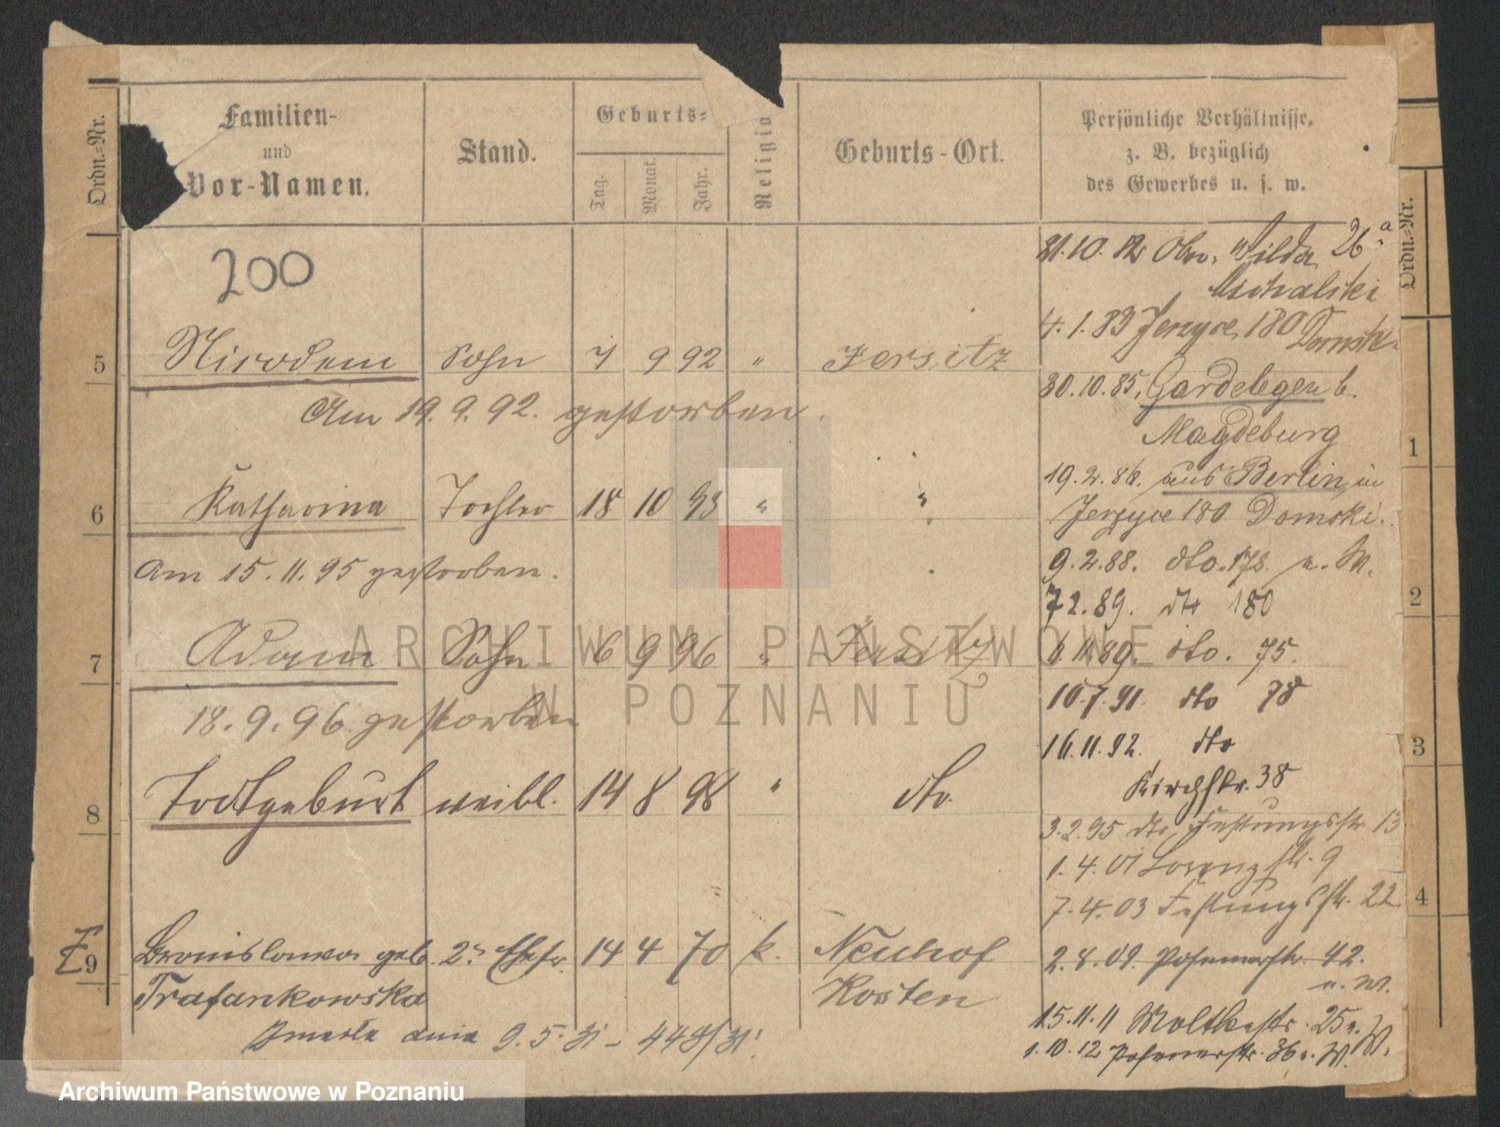 Ordn.-Nr.
Familien-
und
Vor-Namen.
Stand.
Geburts-
Tag.
Monat.
Jahr.
Religio
Geburts-Ort.
Persönliche Verhältnisse,
z. B. bezüglich
des Gewerbes u. s. w.
Ordn.-Nr.
200
5 Nicodem Sohn 7 9 92 " Jersitz
Am 19.9.92. gestorben.
6 Katharina Tochter 18 10 93 " "
Am 15.11.95 gestorben.
7 Adam Sohn 6 9 96 " Jersitz
18.9.96 gestorben
8 Todtgeburt weibl. 14 8 98 " dto.
9 Bronislawa geb. 2te Ehefr. 14 4 70 k. Neuhof
Trafankowska Kosten
Zmarła dnia 9.5.31 - 449/31.
31.10.82 Wilda 26a
4.1.83 Jerzyce 180 Domski
30.10.85. Gardelegen b.
Magdeburg
19.2.86. aus Berlin in
Jerzyce 180 Domski.
9.2.88. dto. 178.
7.2.89. dto 180
11.89. dto. 75.
10.7.91. dto 78
16.11.92. dto
Kirchstr. 38
3.2.95 dto Festungsstr. 13
1.4.01 Lorenzstr. 9
7.4.03 Festungsstr. 22
2.8.09. Posenerstr. 42.
u. W.
15.11.11 Moltkestr. 25 W.
1.10.12 Posenerstr. 36 W.
1
2
3
4
ARCHIWUM PAŃSTWOWE
W POZNANIU
Archiwum Państwowe w Poznaniu